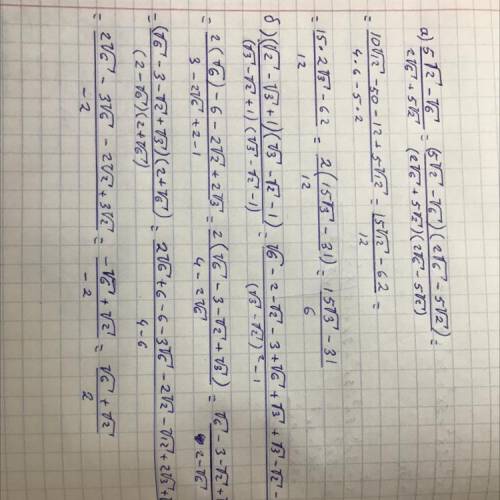 а) (5√2 - √6)/(2√6 + 5√2) = (5√2 - √6)(2√6 - 5√2)/((2√6 + 5√2)(2√6 - 5√2)) =
= (10√12 - 50 - 12 + 5√12)/(4·6 - 5·2) = (15√12 - 62)/12 =
= (15·2√3 - 62)/12 = 2(15√3 - 31)/12 = (15√3 - 31)/6
б) (√2 - √3 + 1)(√3 - √2 - 1)/((√3 - √2 + 1)(√3 - √2 - 1)) = (√6 - 2 - √2 - 3 + √6 + √3 + √3 - √2 -)/((√3 - √2)² - 1)
= (2(√6) - 6 - 2√2 + 2√3)/(3 - 2√6 + 2 - 1) = 2(√6 - 3 - √2 + √3)/(4 - 2√6) = (√6 - 3 - √2 +)/(2 - √6)
= (√6 - 3 - √2 + √3)(2 + √6)/((2 - √6)(2 + √6)) = (2√6 + 6 - 6 - 3√6 - 2√2 - √12 + 2√3 +)/(4 - 6)
= (2√6 - 3√6 - 2√2 + 3√2)/(-2) = (-√6 + √2)/(-2) = (√6 + √2)/2